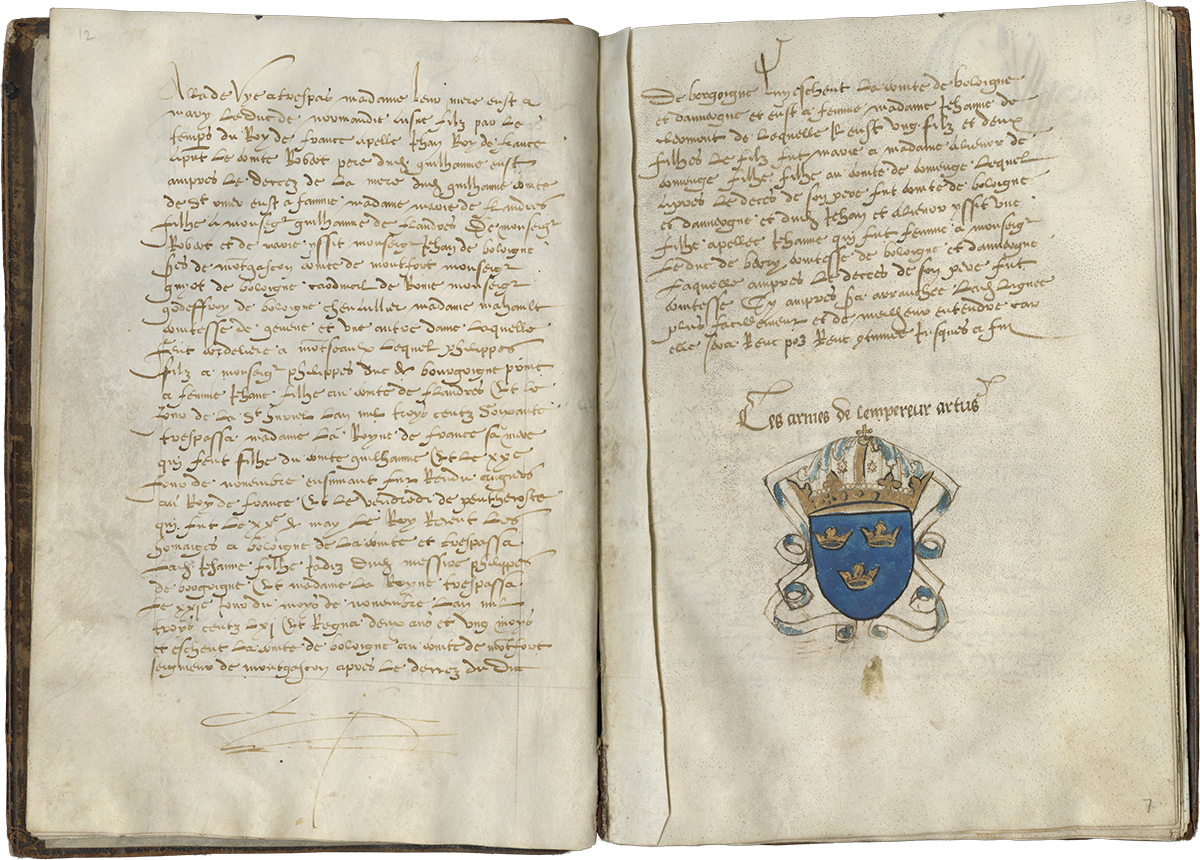 12
Alla de vye a trespas madame leur mere eust a
mary le duc de normandie eisne filz par le
temps du Roy de france apelle Jehan Roy de france
le comte Robert pere dudi guilhaume eust
ampres le decez de la mere dudi guilhaume comte
de st omer eust a famme madame marie de flandres
filhe a monseigr guilhaume de flandres De monseigr
Robert et de marie yssit monseigr Jehan de boloigne
de montgascon comte de montfort monseigr
guiot de boloigne cardinal de Rome monseigr
godeffroy de boloigne chevallier madame mahault
comtesse de geneve et une autre dame laquelle
feut cordeliere a lequel philippes
filz a monseigr philippes duc de bourgoigne print
a femme Jehane filhe au comte de flandres Et le
Jour de la st lan mil troys centz soixante
trespassa madame la Royne de france sa mere
qui feut filhe du comte guilhaume Et le XXe
Jour de novembre ensuivant
au Roy de france Et le vendredi de penthecoste
qui fut le XXe de may le Roy Receut les
homaiges a boloigne de la comte et trespassa
ladi Jehanne filhe Jadiz dudi messire philippes
de borgoigne Et madame la Royne trespassa
le XXIe Jour du moys de novembre lan mil
troys centz LXI Et Regna deux ans et ung moys
et escheut la comte de boloigne au comte de montfort
seigneur de montgascon apres le decez du duc
13
De borgoigne luy escheut la comte de boloigne
et dauvergne et eust a femme madame Jehanne de
clermont de lequelle Il eust ung filz et deux
filhes le filz fut marie a madame alienor de
comenge filhe au comte de comenge lequel
apres le deces de son pere fut comte de boloigne
et dauvergne et dudi Jehan et alienor yssit une
filhe apellee Jehanne qui fut femme a monseigr
le duc de berry comtesse de boloigne et dauvergne
laquelle ampres le decces de son pere fut
comtesse Cy ampres ladi lignee
plus facillement et de melheur entendre car
elle sera Jusques a fin
Les armes de lempereur artus
7